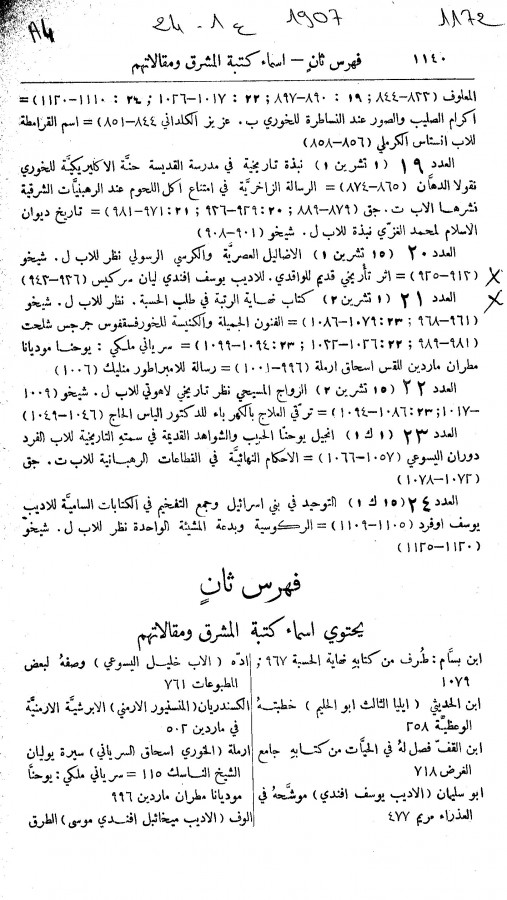 A4 24-1ع 1907 1172
١١٤٠ فهرس ثانٍ – اسماء كتبة المشرق ومقالاتهم
المعلوف (٨٢٢–٨٤٤; ١٩ : ٨٩٠–٨٩٧; ٢٢ : ١٠١٧–١٠٢٦; ٢٤ : ١١١٠–١١٢٠) =
اكرام الصليب والصور عند النساطرة للخوري ب. عزيز الكلداني (٨٤٤–٨٥١) = اسم القرامطة
للاب انستاس الكرملي (٨٥٦–٨٥٨)
العدد ١٩ (١ تشرين ١) نبذة تاريخية في مدرسة القديسة حنّة الاكليريكيَّة للخوري
نقولا الدهَّان (٨٦٥–٨٧٤) = الرسالة الزاخريَّة في امتناع اكل اللحوم عند الرهبنيَّات الشرقية
نشرها الاب ت. جق (٨٧٩–٨٨٩; ٢٠: ٩٢٩–٩٣٦; ٢١: ٩٧١–٩٨١) = تاريخ ديوان
الاسلام لمحمد الغزّي نبذة للاب ل. شيخو (٩٠١–٩٠٨)
العدد ٢٠ (١٥ تشرين ١) الاضاليل العصريَّة والكرسي الرسولي نظر للاب ل. شيخو
(٩١٢–٩٢٥) = اثر تأريخي قديم للواقدي. للاديب يوسف افندي ليان سركيس (٩٢٦–٩٤٣) X
العدد ٢١ (١ تشرين ٢) كتاب نهاية الرتبة في طلب الحسبة. نظر للاب ل. شيخو X
(٩٦١–٩٦٨; ٢٣: ١٠٧٩–١٠٨٦) = الفنون الجميلة والكنيسة للخورفسقفوس جرجس شلحت
(٩٨١–٩٨٩; ٢٢: ١٠٢٦–١٠٣٢; ٢٣: ١٠٩٤–١٠٩٩) = سرياني ملكي: يوحنا موديانا
مطران ماردين للقس اسحاق ارملة (٩٩٦–١٠٠١) = رسالة للامبراطور منليك (١٠٠٦)
العدد ٢٢ (١٥ تشرين ٢) الزواج المسيحي نظر تاريخي لاهوتي للاب ل. شيخو (١٠٠٩
–١٠١٧; ٢٣: ١٠٨٦–١٠٩٤) = ترقّي العلاج بالكهرباء للدكتور الياس الحاج (١٠٤٦–١٠٤٩)
العدد ٢٣ (١ ك ١) انجيل يوحنّا الحبيب والشواهد القديمة في سمته التاريخية للاب الفرد
دوران اليسوعي (١٠٥٧–١٠٦٦) = الاحكام النهائية في القطاعات الرهبانية للاب ت. جق
(١٠٧٢–١٠٧٨)
العدد ٢٤ (١٥ ك ١) التوحيد في بني اسرائيل وجمع التفخيم في الكتابات السامية للاديب
يوسف اوفرد (١١٠٥–١١٠٩) = الركوسية وبدعة المشيئة الواحدة نظر للاب ل. شيخو
(١١٢٠–١١٢٥)
فهرس ثانٍ
يحتوي اسماء كتبة المشرق ومقالاتهم
ابن بسَّام: طُرف من كتابهِ نهاية الحسبة ٩٦٧;
١٠٧٩
ابن الحديثي (ايليا الثالث ابو الحليم) خطبتهُ
الوعظيَّة ٢٥٨
ابن القفّ فصل لهُ في الحمَّيات من كتابهِ جامع
الغرض ٧١٨
ابو سليمان (الاديب يوسف افندي) موشَّحهُ في
العذراء مريم ٤٧٧
ادّه (الاب خليل اليسوعي) وصفهُ لبعض
المطبوعات ٧٦١
الكسندريان (المنسنيور الارمني) الابرشيَّة الارمنيَّة
في ماردين ٥٠٢
ارملة (الخوري اسحاق السرياني) سيرة يوليان
الشيخ الناسك ١١٥ = سرياني ملكي: يوحنَّا
موديانا مطران ماردين ٩٩٦
الوف (الاديب ميخائيل افندي موسى) الطرق